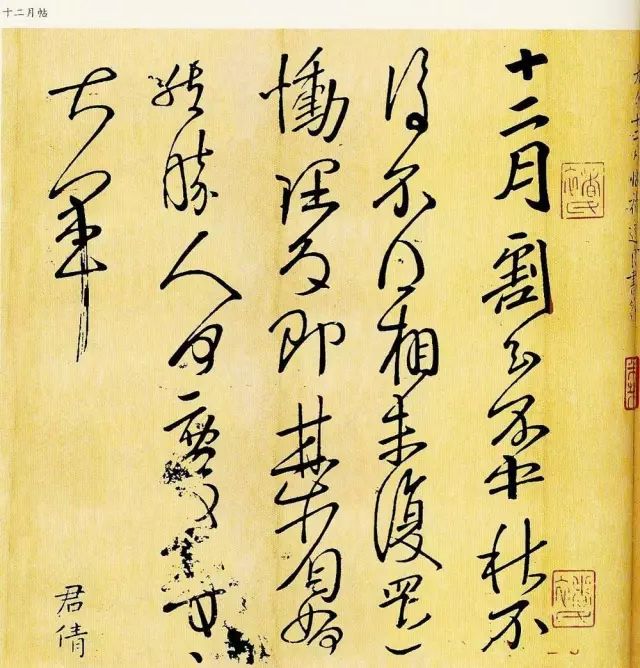 十二月帖
十二月割至不中秋不
復不得相未復還
慟理為即甚省如何
然勝人何慶等
大軍
君倩